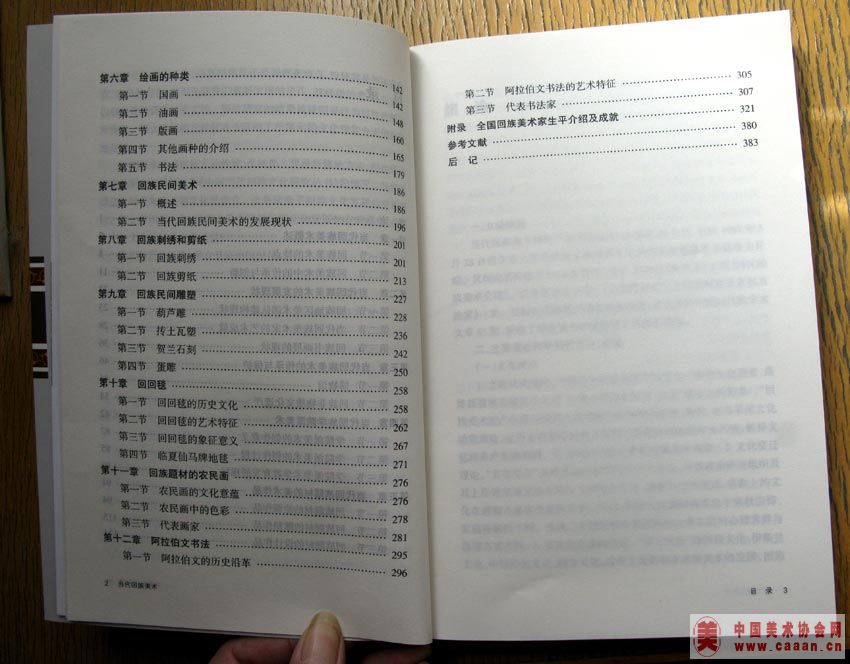 第六章 绘画的种类 142
第一节 国画 142
第二节 油画 148
第三节 版画 160
第四节 其他画种的介绍 165
第五节 书法 179
第七章 回族民间美术 186
第一节 概述 186
第二节 当代回族民间美术的发展现状 196
第八章 回族刺绣和剪纸 201
第一节 回族刺绣 201
第二节 回族剪纸 213
第九章 回族民间雕塑 227
第一节 葫芦雕 228
第二节 抟土瓦塑 236
第三节 贺兰石刻 242
第四节 蛋雕 250
第十章 回回毯 258
第一节 回回毯的历史文化 258
第二节 回回毯的艺术特征 262
第三节 回回毯的象征意义 267
第四节 临夏仙马牌地毯 271
第十一章 回族题材的农民画 276
第一节 农民画的文化意蕴 276
第二节 农民画中的色彩 278
第三节 代表画家 281
第十二章 阿拉伯文书法 295
第一节 阿拉伯文的历史沿革 296
2 当代回族美术
第二节 阿拉伯文书法的艺术特征 305
第三节 代表书法家 307
附录 全国回族美术家生平介绍及成就 321
参考文献 380
后 记 383
目 录 3
美 中国美术协会网
www.caaan.cn